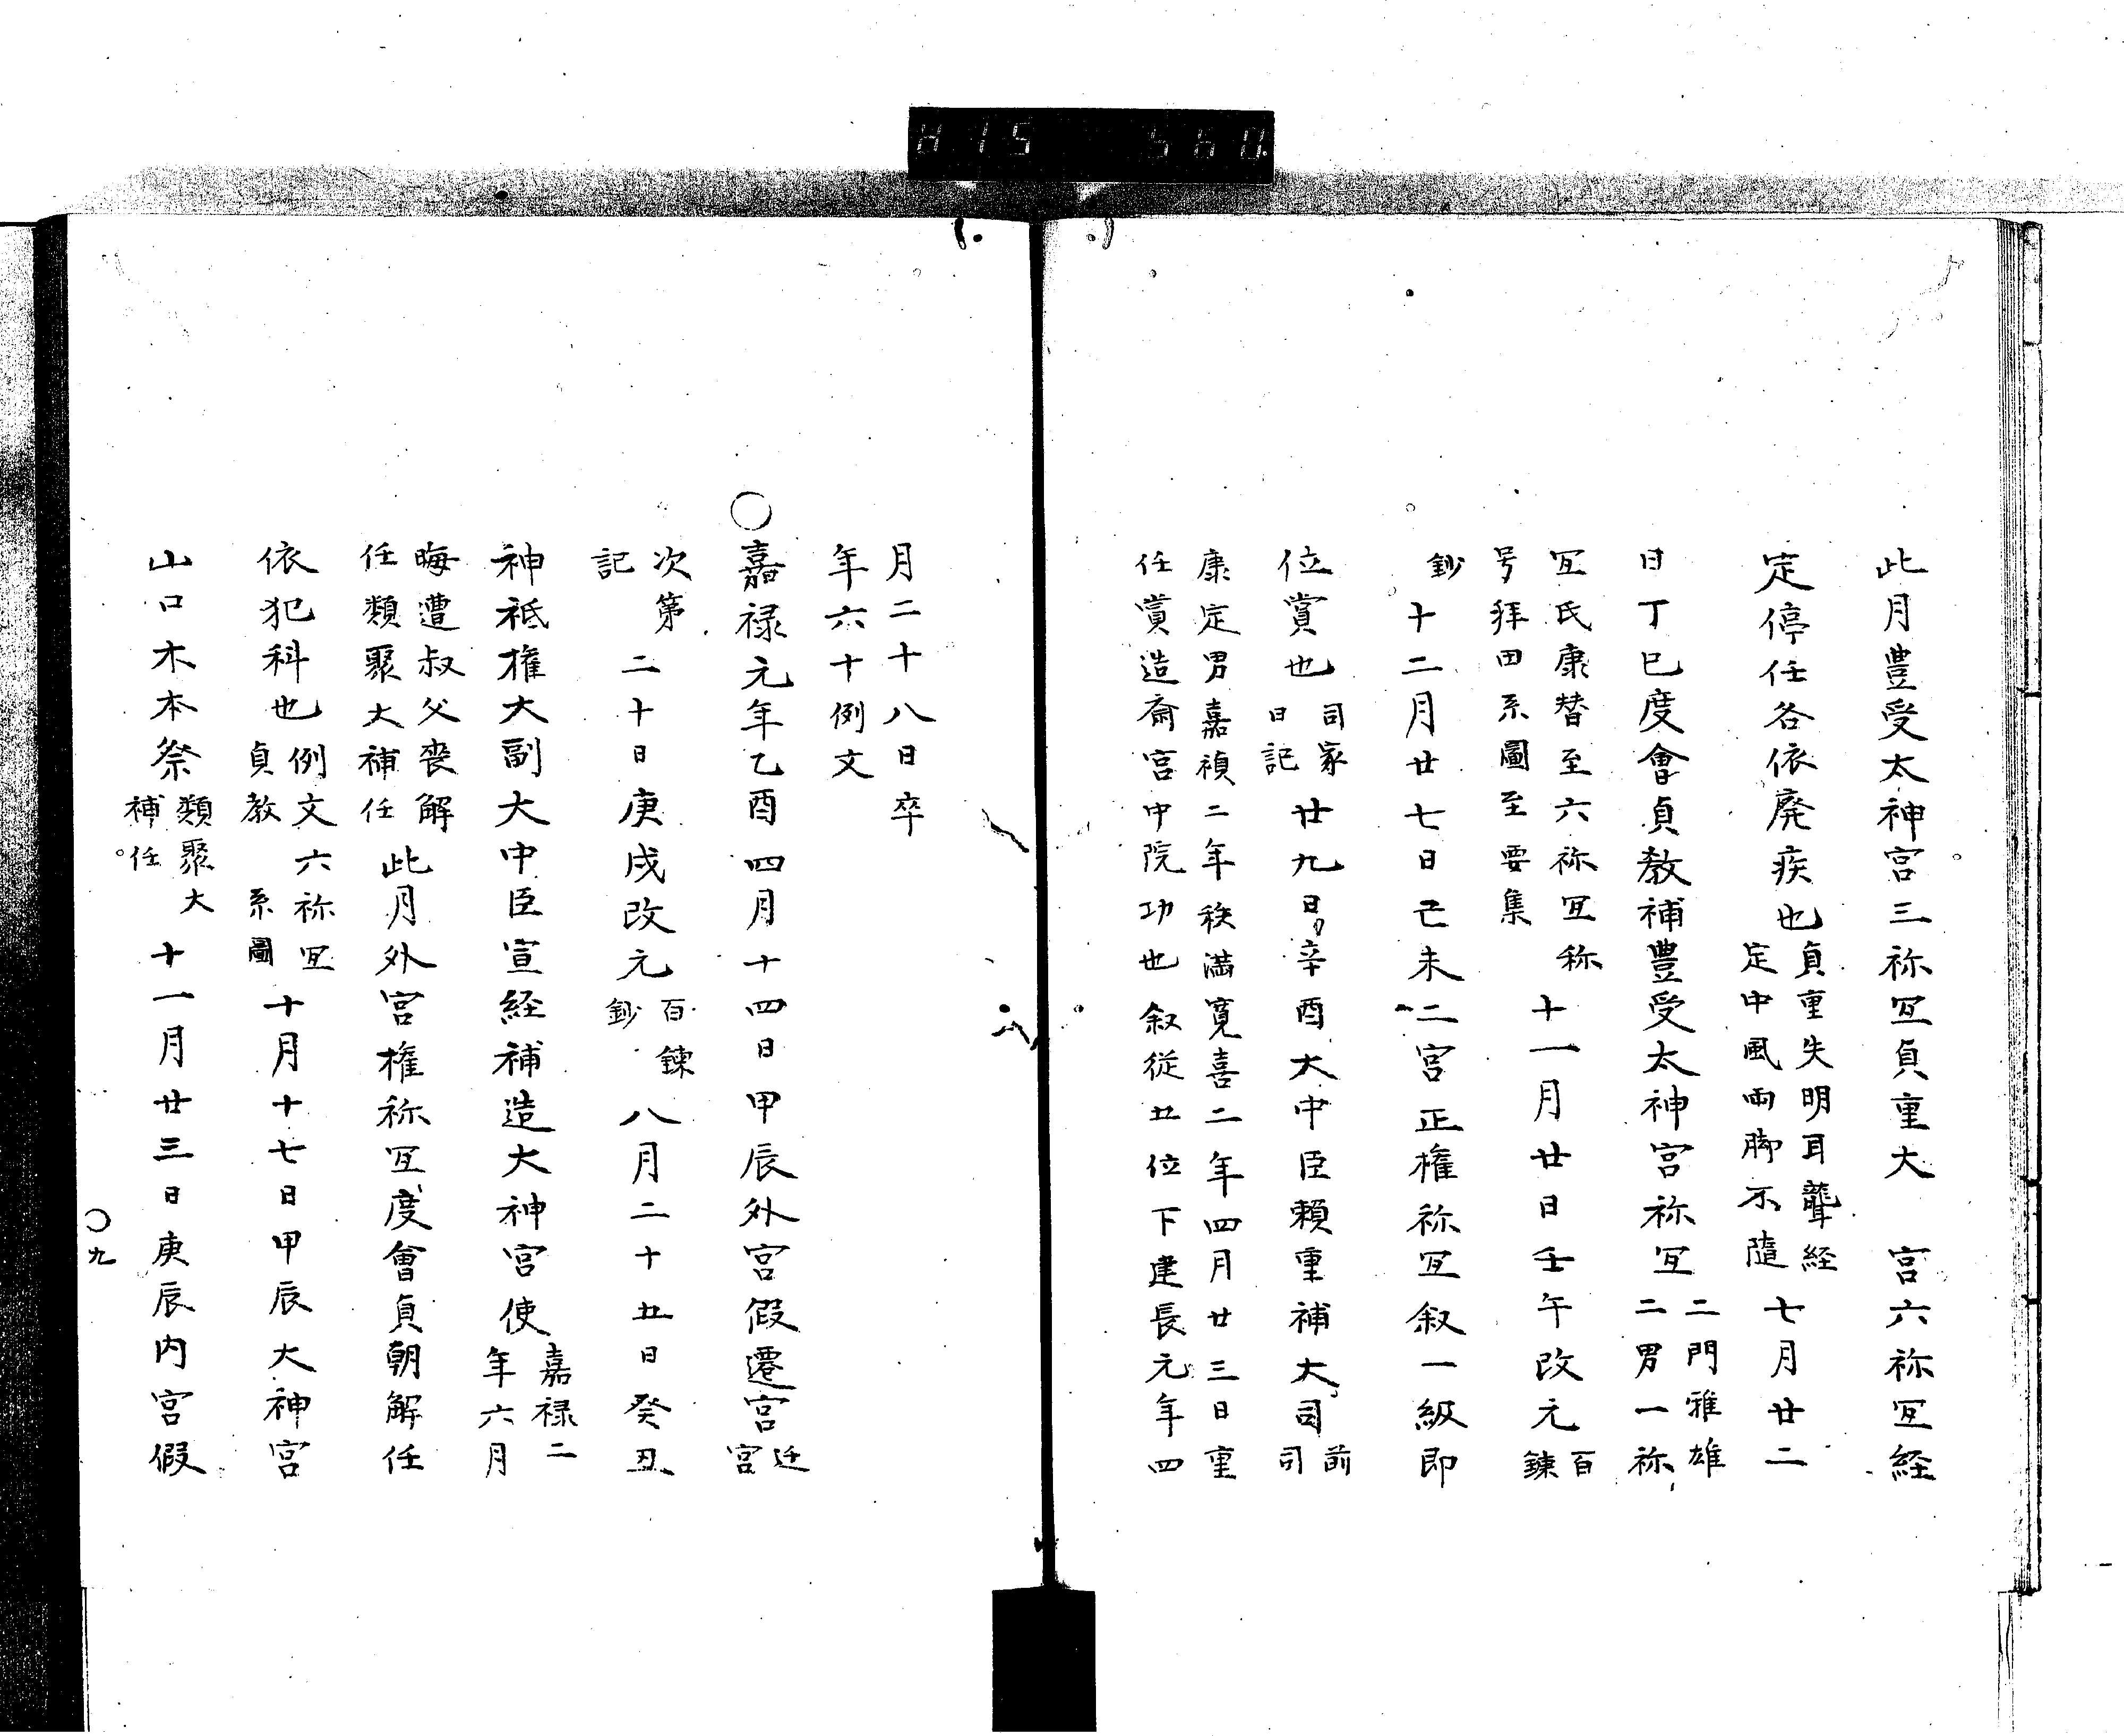 H15 560
此月豊受太神宮三祢冝貞重大 宮六祢冝経
定停任各依廃疾也貞重失明耳聾経
定中風両脚不随七月廿二
日丁巳度會貞教補豊受太神宮祢冝二門雅雄
二男一祢
冝氏康替至六祢冝称
号拜田系圖至要集十一月廿日壬午改元百
錬
鈔十二月廿七日己未二宮正権祢冝叙一級即
位賞也司家
日記廿九日辛酉大中臣頼重補大司前
司
康定男嘉禎二年秩満寛喜二年四月廿三日重
任賞造斎宮中院功也叙従五位下建長元年四
月二十八日卒
年六十例文
○嘉禄元年乙酉四月十四日甲辰外宮假遷宮迁
宮
次第
記二十日庚戌改元百錬
鈔八月二十五日癸丑
神祇権大副大中臣宣経補造大神宮使嘉禄二
年六月
晦遭叔父喪解
任類聚大補任此月外宮権祢冝度會貞朝解任
依犯科也例文六祢冝
貞教系圖十月十七日甲辰大神宮
山口木本祭類聚大
補任十一月廿三日庚辰内宮假
○九